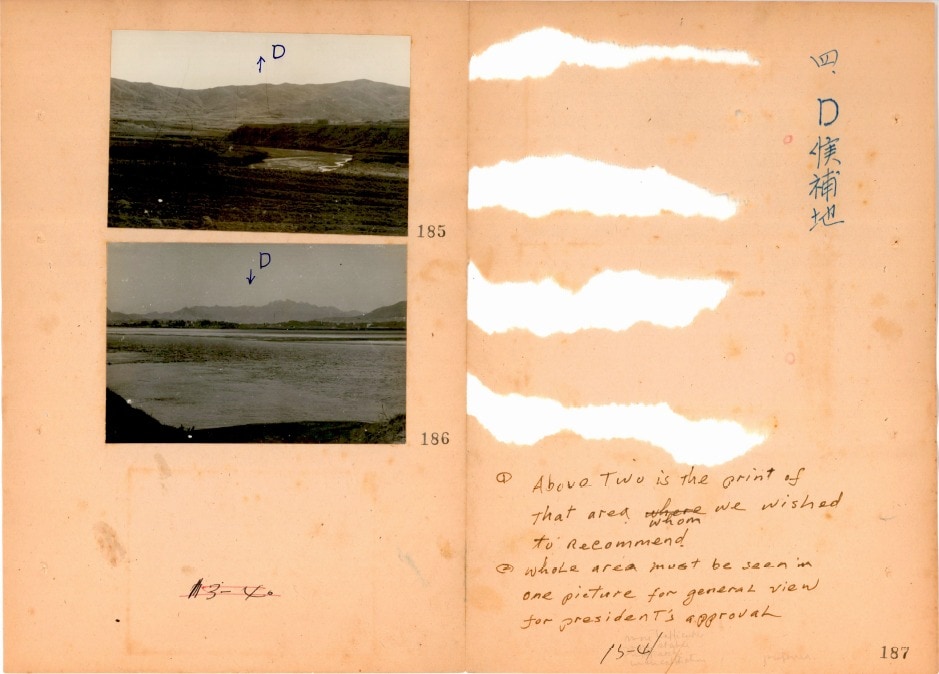 ↑ D
185
↓ D
186
13-40
四、D候補地
① Above Two is the print of
that area where we wished
whom
to Recommend
② whole area must be seen in
one picture for general view
for president's approval
13-41
187